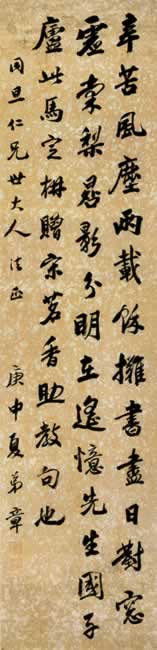 辛苦風塵兩載餘擁書盡日對窓
虛棠梨晷影分明在遙憶先生國子
廬此馬定枏贈宗茗香助教句也
同旦仁兄世大人法正
庚申夏弟章